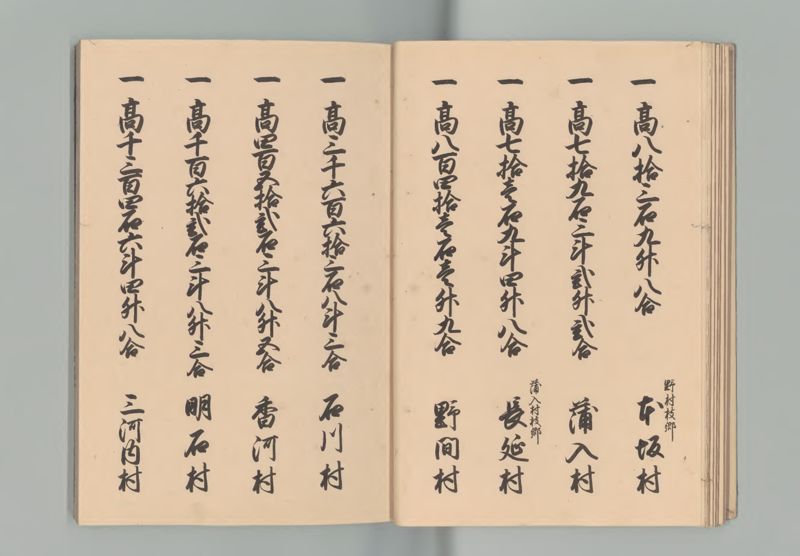 一 高八拾三石九升八合
野村枝郷
本坂村
一 高七拾九石三斗弐升弐合
蒲入村
一 高七拾壱石九斗四升八合
蒲入村枝郷
長延村
一 高八百四拾壱石壱升九合
野間村
一 高三千六百六拾三石八斗三合
石川村
一 高四百五拾弐石三斗八升五合
香河村
一 高千百六拾弐石三斗八升三合
明石村
一 高千三百四石六斗四升八合
三河内村